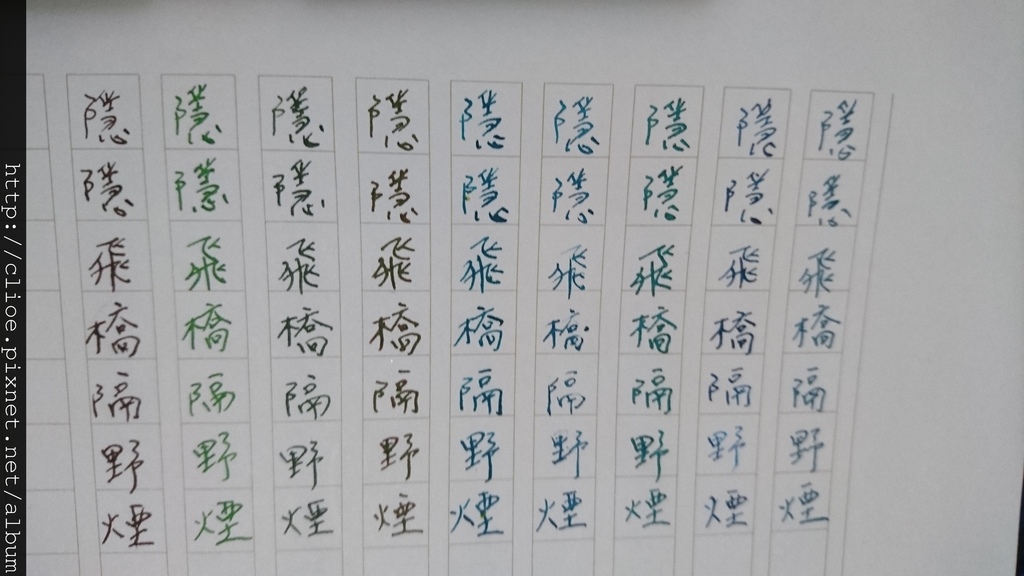 隱隱飛橋隔野煙
隱隱飛橋隔野煙
隱隱飛橋隔野煙
隱隱飛橋隔野煙
隱隱飛橋隔野煙
隱隱飛橋隔野煙
隱隱飛橋隔野煙
隱隱飛橋隔野煙
隱隱飛橋隔野煙
http://clioe.pixnet.net/album